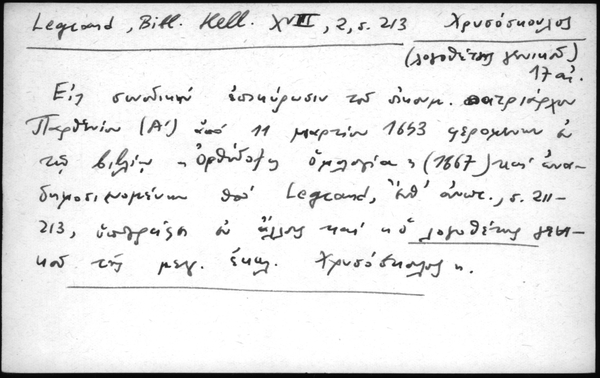 Legrand, Bibl. Hell. XVII, 2, σ. 213 Χρυσόσκουλος
(λογοθέτης γενικοῦ)
17 αἰ.
Εἰς συνοδικὴν ἐπικύρωσιν τοῦ οἰκουμ. πατριάρχου
Παρθενίου (Α΄) ἀπὸ 11 μαρτίου 1643 φερομένην ἐν
τῷ βιβλίῳ «Ὀρθόδοξος ὁμολογία» (1667) καὶ ἀνα-
δημοσιευομένην ὑπὸ Legrand, ἔνθ' ἀνωτ., σ. 211-
213, ὑπογράφει ἐν ἄλλοις καὶ «ὁ λογοθέτης γενι-
κοῦ τῆς μεγ. ἐκκλ. Χρυσόσκουλος».